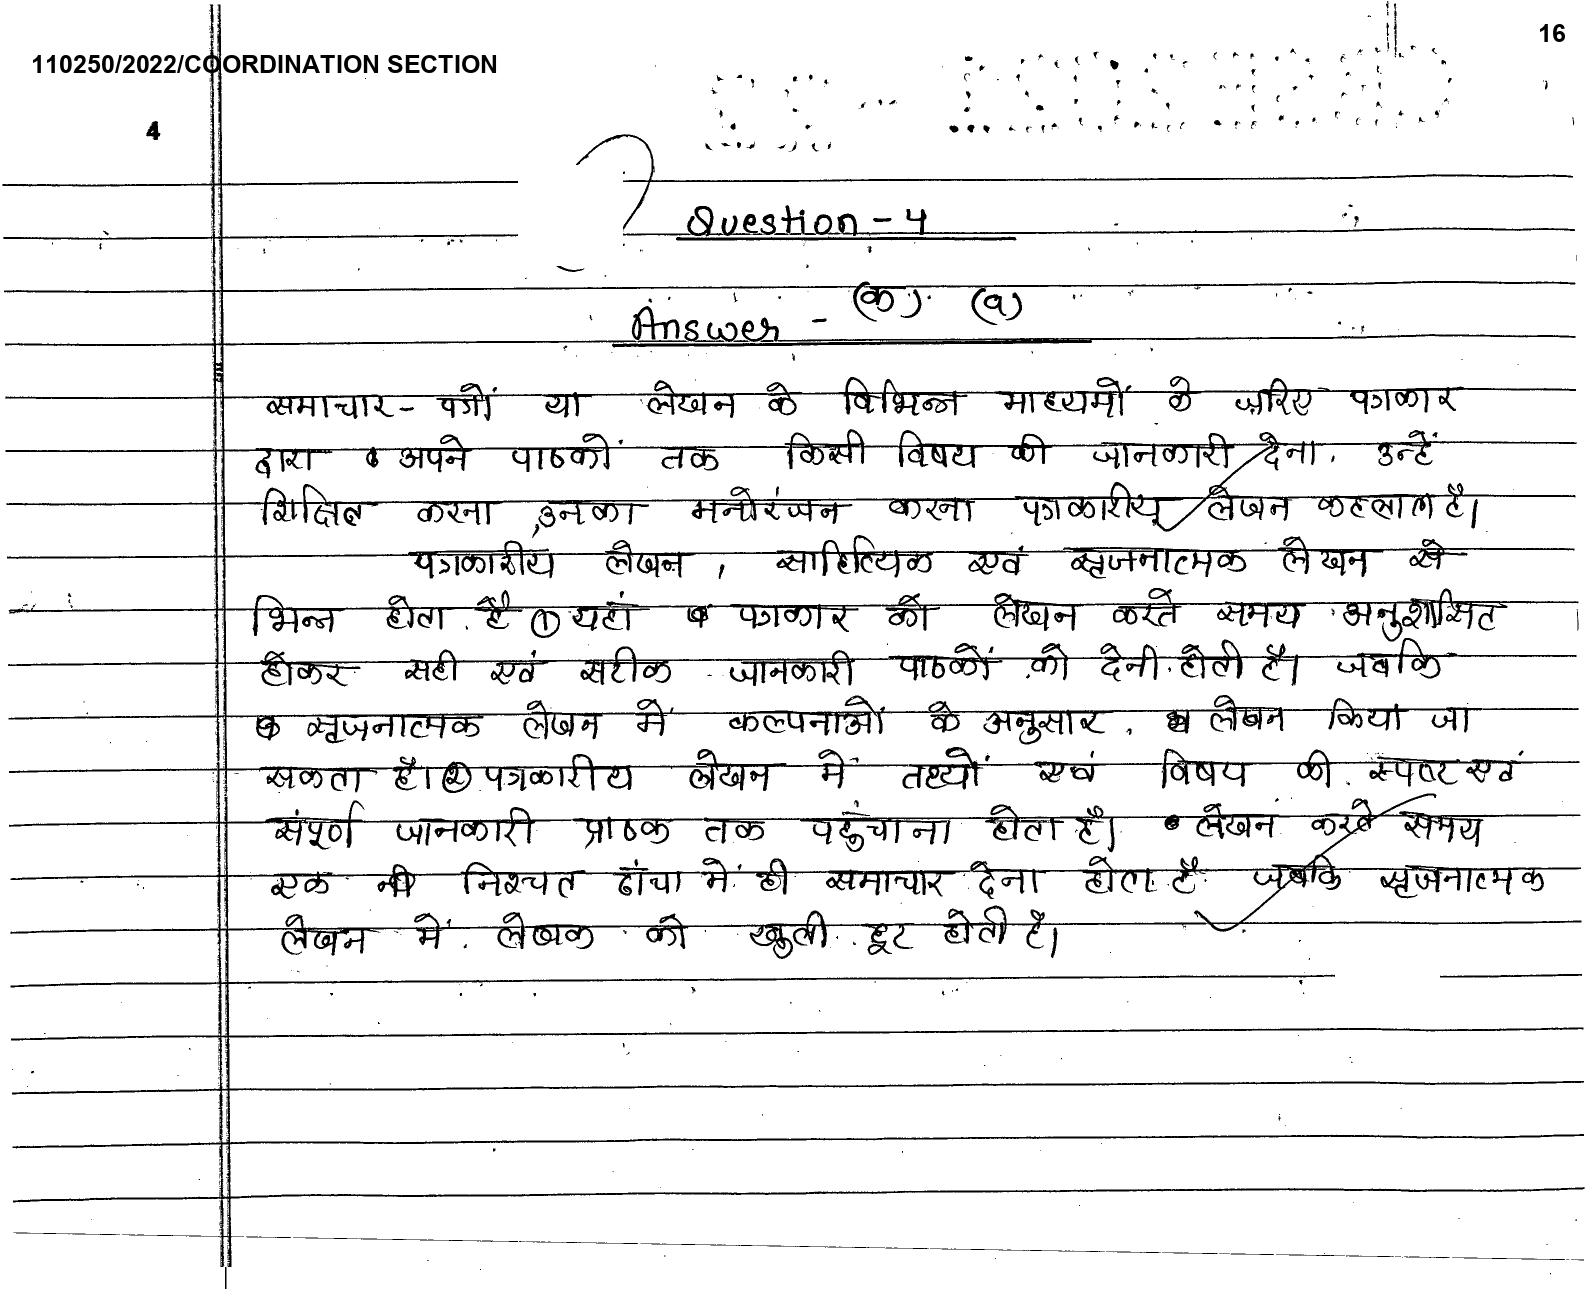 16
110250/2022/COORDINATION SECTION
4
Question - 4
Answer - (क) (a)
समाचार - पत्रों या लेखन के विभिन्न माध्यमों के ज़रिए पत्रकार
द्वारा अपने पाठकों तक किसी विषय की जानकारी देना, उन्हें
शिक्षित करना, उनका मनोरंजन करना पत्रकारीय लेखन कहलाता है।
पत्रकारीय लेखन, साहित्यिक एवं सृजनात्मक लेखन से
भिन्न होता है ① यहां पत्रकार को लेखन करते समय अनुशासित
होकर सही एवं सटीक जानकारी पाठकों को देनी होती है। जबकि
सृजनात्मक लेखन में कल्पनाओं के अनुसार, लेखन किया जा
सकता है। ② पत्रकारीय लेखन में तथ्यों एवं विषय की स्पष्ट एवं
संपूर्ण जानकारी पाठक तक पहुंचाना होता है। लेखन करते समय
एक निश्चत ढांचा में ही समाचार देना होता है जबकि सृजनात्मक
लेखन में लेखक को खुली छूट होती है।